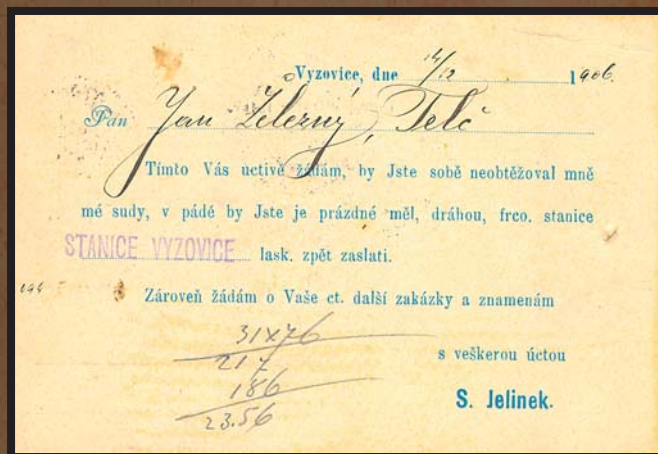 Vyzovice, dne 14/12 1906.
Pan Jan Železný, Telč
Tímto Vás uctivě žádám, by Jste sobě neobtěžoval mně
mé sudy, v pádě by Jste je prázdné měl, dráhou, frco. stanice
STANICE VYZOVICE lask. zpět zaslati.
Zároveň žádám o Vaše ct. další zakázky a znamenám
31x76
217
186
23.56
s veškerou úctou
S. Jelinek.